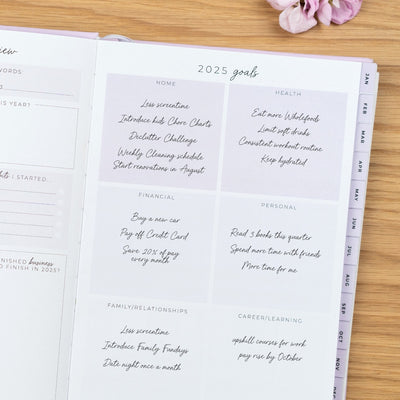 view
WORDS
THIS YEAR?
I STARTED
FINISHED business
TO FINISH IN 2025?
2025 goals
HOME
Less screentime
Introduce kids Chore Charts
Declutter Challenge
Weekly Cleaning schedule
Start renovations in August
HEALTH
Eat more Wholefoods
Limit soft drinks
Consistent workout routine
Keep hydrated
FINANCIAL
Buy a new car
Pay off Credit Card
Save 20% of pay
every month
PERSONAL
Read 3 books this quarter
Spend more time with friends
More time for me
FAMILY/RELATIONSHIPS
Less screentime
Introduce Family Fundays
Date night once a month
CAREER/LEARNING
upskill courses for work
pay rise by October
JAN
FEB
MAR
APR
MAY
JUN
JUL
AUG
SEP
OCT
NOV
DEC